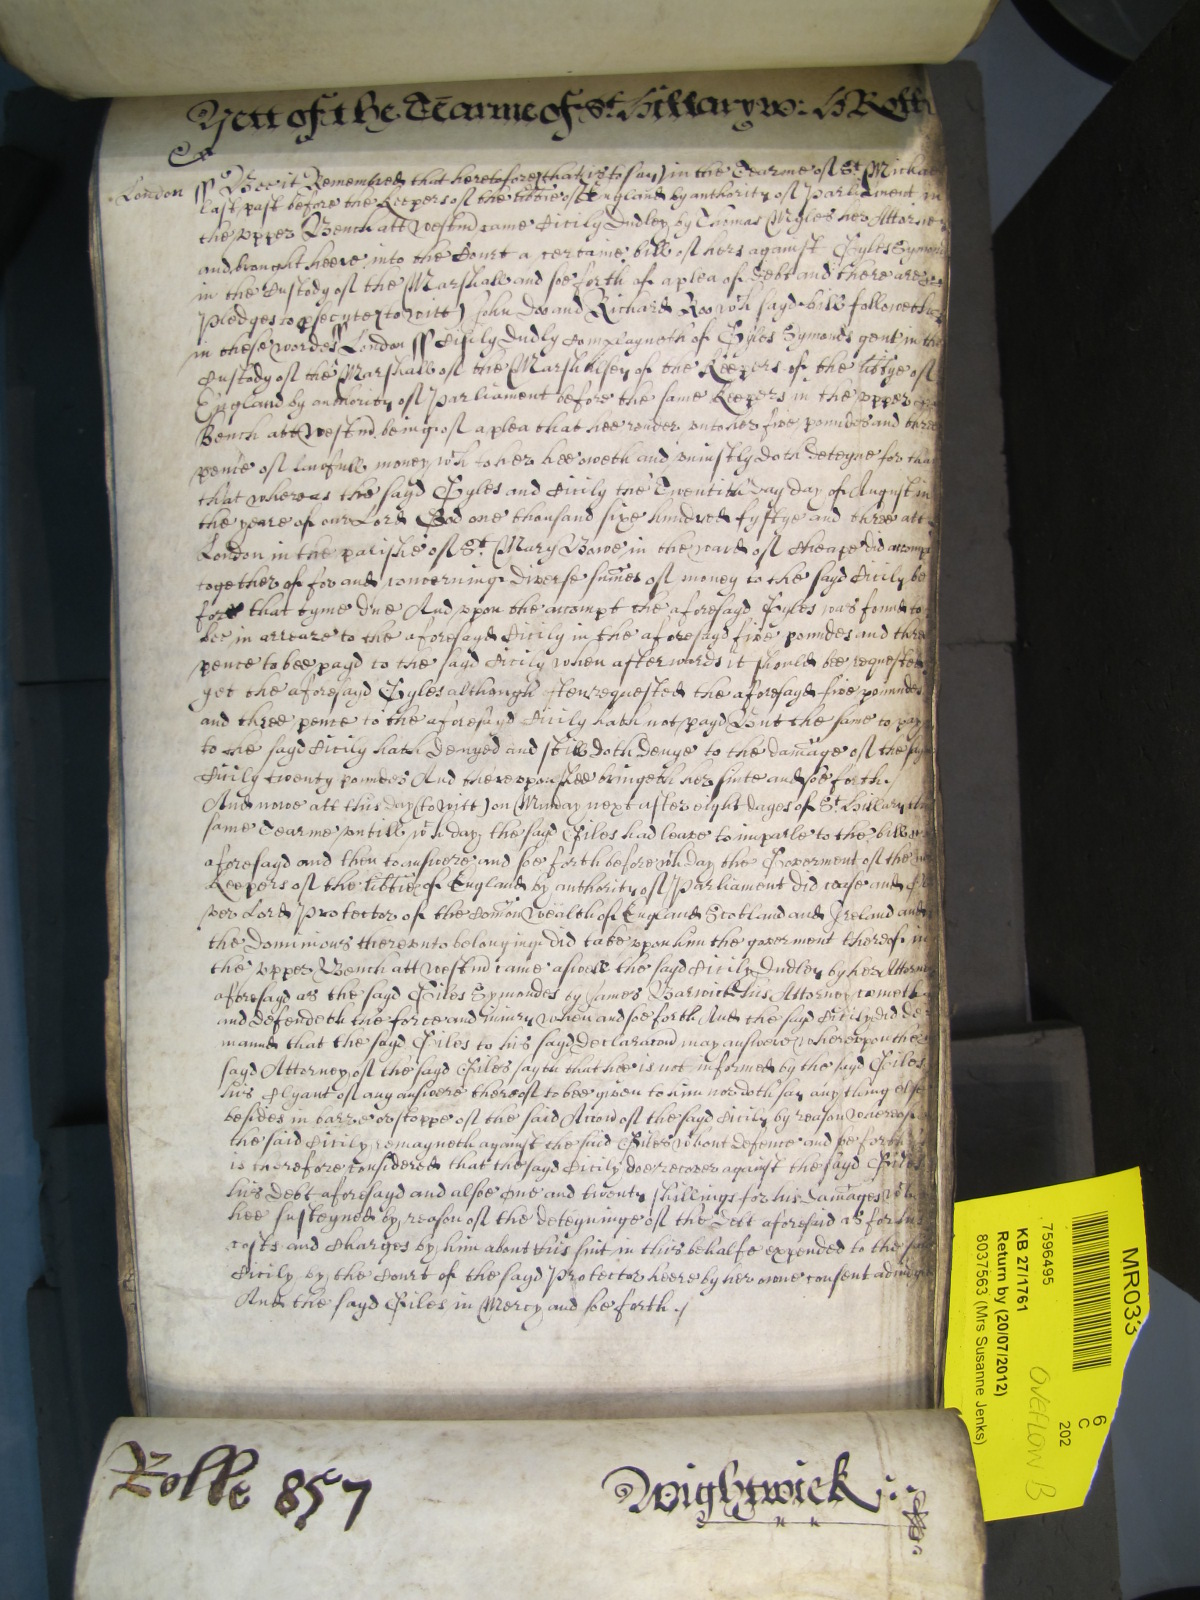 Yett of the Tearme of St. Hillary w: H Rott
London ss Bee it Remembred that heretofore (that is to say) in the Tearme of St. Michae
last past before the Keepers of the libtie of England by authority of Parliament in
the vpper Bench att Westmr came Sicily Dudley by Thomas Myles her Attorney
and brought heere into the Court a certaine bill of hers against Gyles Symon
in the Custody of the Marshall and soe forth of a plea of Debt and there are
pledges to psecute (to witt) John Doo and Richard Roo wch sayd bill followeth
in these wordes London ss Sisily Dudly Complayneth of Gyles Symonds gent in the
Custody of the Marshall of the Marshalsey of the Keepers of the libtye of
England by authority of Parliament before the same Keepers in the vpper
Bench att Westmr being of a plea that hee render vnto her five poundes and three
pence of lawfull money wch to her hee oweth and vniustly doth deteyne for that
that whereas the sayd Gyles and Sicily the Twentith day day of August in
the yeare of our Lord God one thousand sixe hundred fyftye and three att
London in the parishe of St. Mary Bowe in the ward of Cheape did accompt
together of for and concerninge diverse summes of money to the sayd Sicily be
fore that tyme due And vpon the accompt the aforesayd Gyles was found to
bee in arreare to the aforesayd Sicily in the aforesayd five poundes and three
pence to bee payd to the sayd Sicily when afterwards it should bee requested
yet the aforesayd Gyles although often requested the aforesayd five poundes
and three pence to the aforesayd Sicily hath not payd But the same to pay
to the sayd Sicily hath denyed and still doth denye to the damage of the sayd
Sicily twenty poundes And therevpon shee bringeth her suite and soe forth./
And nowe att this day (to witt) on Munday next after eight dayes of St. Hillary
same Tearme vntill wch day the sayd Giles had leave to imparle to the bill
aforesayd and then to answere and soe forth before wch day the Goverment of the
Keepers of the libtie of England by authority of Parliament did cease and
ver Lord Protector of the Common Wealth of England Scotland and Ireland and
the Dominions therevnto belonginge did take vpon him the goverment thereof in
the vpper Bench att Westmr came aswell the sayd Sicily Dudley by her Attorney
aforesayd as the sayd Giles Symondes by James Barwick his Attorney cometh
and defendeth the force and iniury when and soe forth And the sayd Sicily did de
maund that the sayd Giles to his sayd Declaracon may answere wherevpon the
sayd Attorney of the sayd Giles sayth that hee is not informed by the sayd Giles
his Clyant of any answere thereof to bee given to him nor doth say any thing else
besides in barre or stoppe of the said Accon of the sayd Sicily by reason whereof
the said Sicily remayneth against the said Giles wthout defence and soe forth
is therefore considered that the sayd Sicily doe recover against the sayd Giles
his Debt aforesayd and alsoe one and twenty shillings for his damages wch
hee susteyned by reason of the deteyninge of the Debt aforesaid as for his
costs and Charges by him about this suit in this behalfe expended to the sayd
Sicily by the Court of the sayd Protector heere by her owne consent adiudged
And the sayd Giles in Mercy and soe forth./
Rolle 857
Wightwick
MR033
6
C
202
7596495
KB 27/1761
Return by (20/07/2012)
8037563 (Mrs Susanne Jenks)
OVEFLOW B